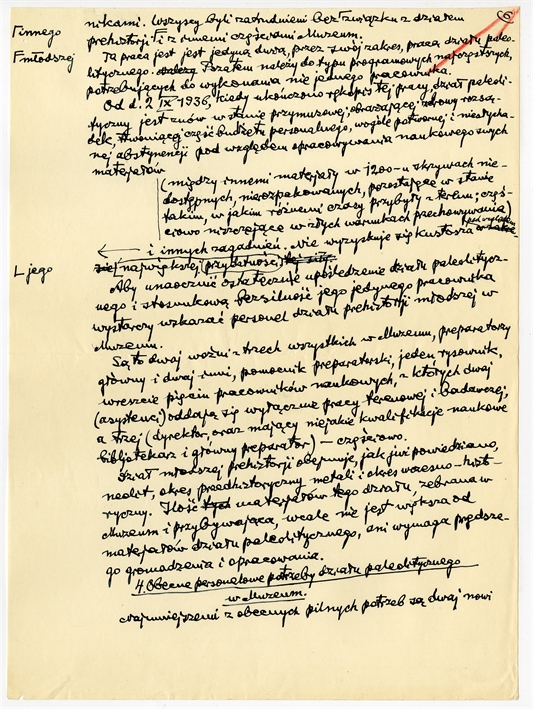 6
nikami. Wszyscy byli zatrudnieni bez związku z działem
⌈innego
prehistorji ⌈ i z innemi częściami Muzeum.
⌈młodszej
Ta praca jest jest jedyną dużą, przez swój zakres, pracą działu paleo-
litycznego. Pozatem należy do typu programowych najgorętszych,
potrzebujących do wykonania nie jednego pracownika.
Od d. 2 IX 1936, kiedy ukończono rękopis tej pracy, dział paleoli-
tyczny jest znów w stanie przymusowej, obrażającej zdrowy rozsą-
dek, trwoniącej część budżetu personalnego, wogóle potwornej i niesłycha-
nej abstynencji pod względem opracowywania naukowego swych
materjałów
(między innemi materjały w 1200-u skrzyniach nie-
dostępnych, nierozpakowanych, pozostające w stanie
takim, w jakim różnemi czasy przybyły z terenu; częś-
ciowo niszczejące w złych warunkach przechowywania)
i innych zagadnień. Nie wyzyskuje się kustosza
⌊ jego
największej przydatności
Aby unaocznić ostateczne upośledzenie działu paleolitycz-
nego i stosunkową bezsilność jego jedynego pracownika
wystarczy wskazać personel działu prehistorji młodszej w
Muzeum.
Są to dwaj woźni z trzech wszystkich w Muzeum, preparatorzy
główny i dwaj inni, pomocnik preparatorski, jeden rysownik,
wreszcie pięciu pracowników naukowych, z których dwaj
(asystenci) oddają się wyłącznie pracy terenowej i badawczej,
a trzej (dyrektor, oraz mający niejakie kwalifikacje naukowe
bibljotekarz i główny preparator) — częściowo.
Dział młodszej prehistorji obejmuje, jak już powiedziano,
neolit, okres przedhistoryczny metali i okres wczesno-histo-
ryczny. Ilość materjałów tego działu, zebrana w
Muzeum i przybywająca, wcale nie jest większa od
materjałów działu paleolitycznego, ani wymaga prędsze-
go gromadzenia i opracowania.
4. Obecne personalowe potrzeby działu paleolitycznego
w Muzeum.
Najmniejszemi z obecnych pilnych potrzeb są dwaj nowi